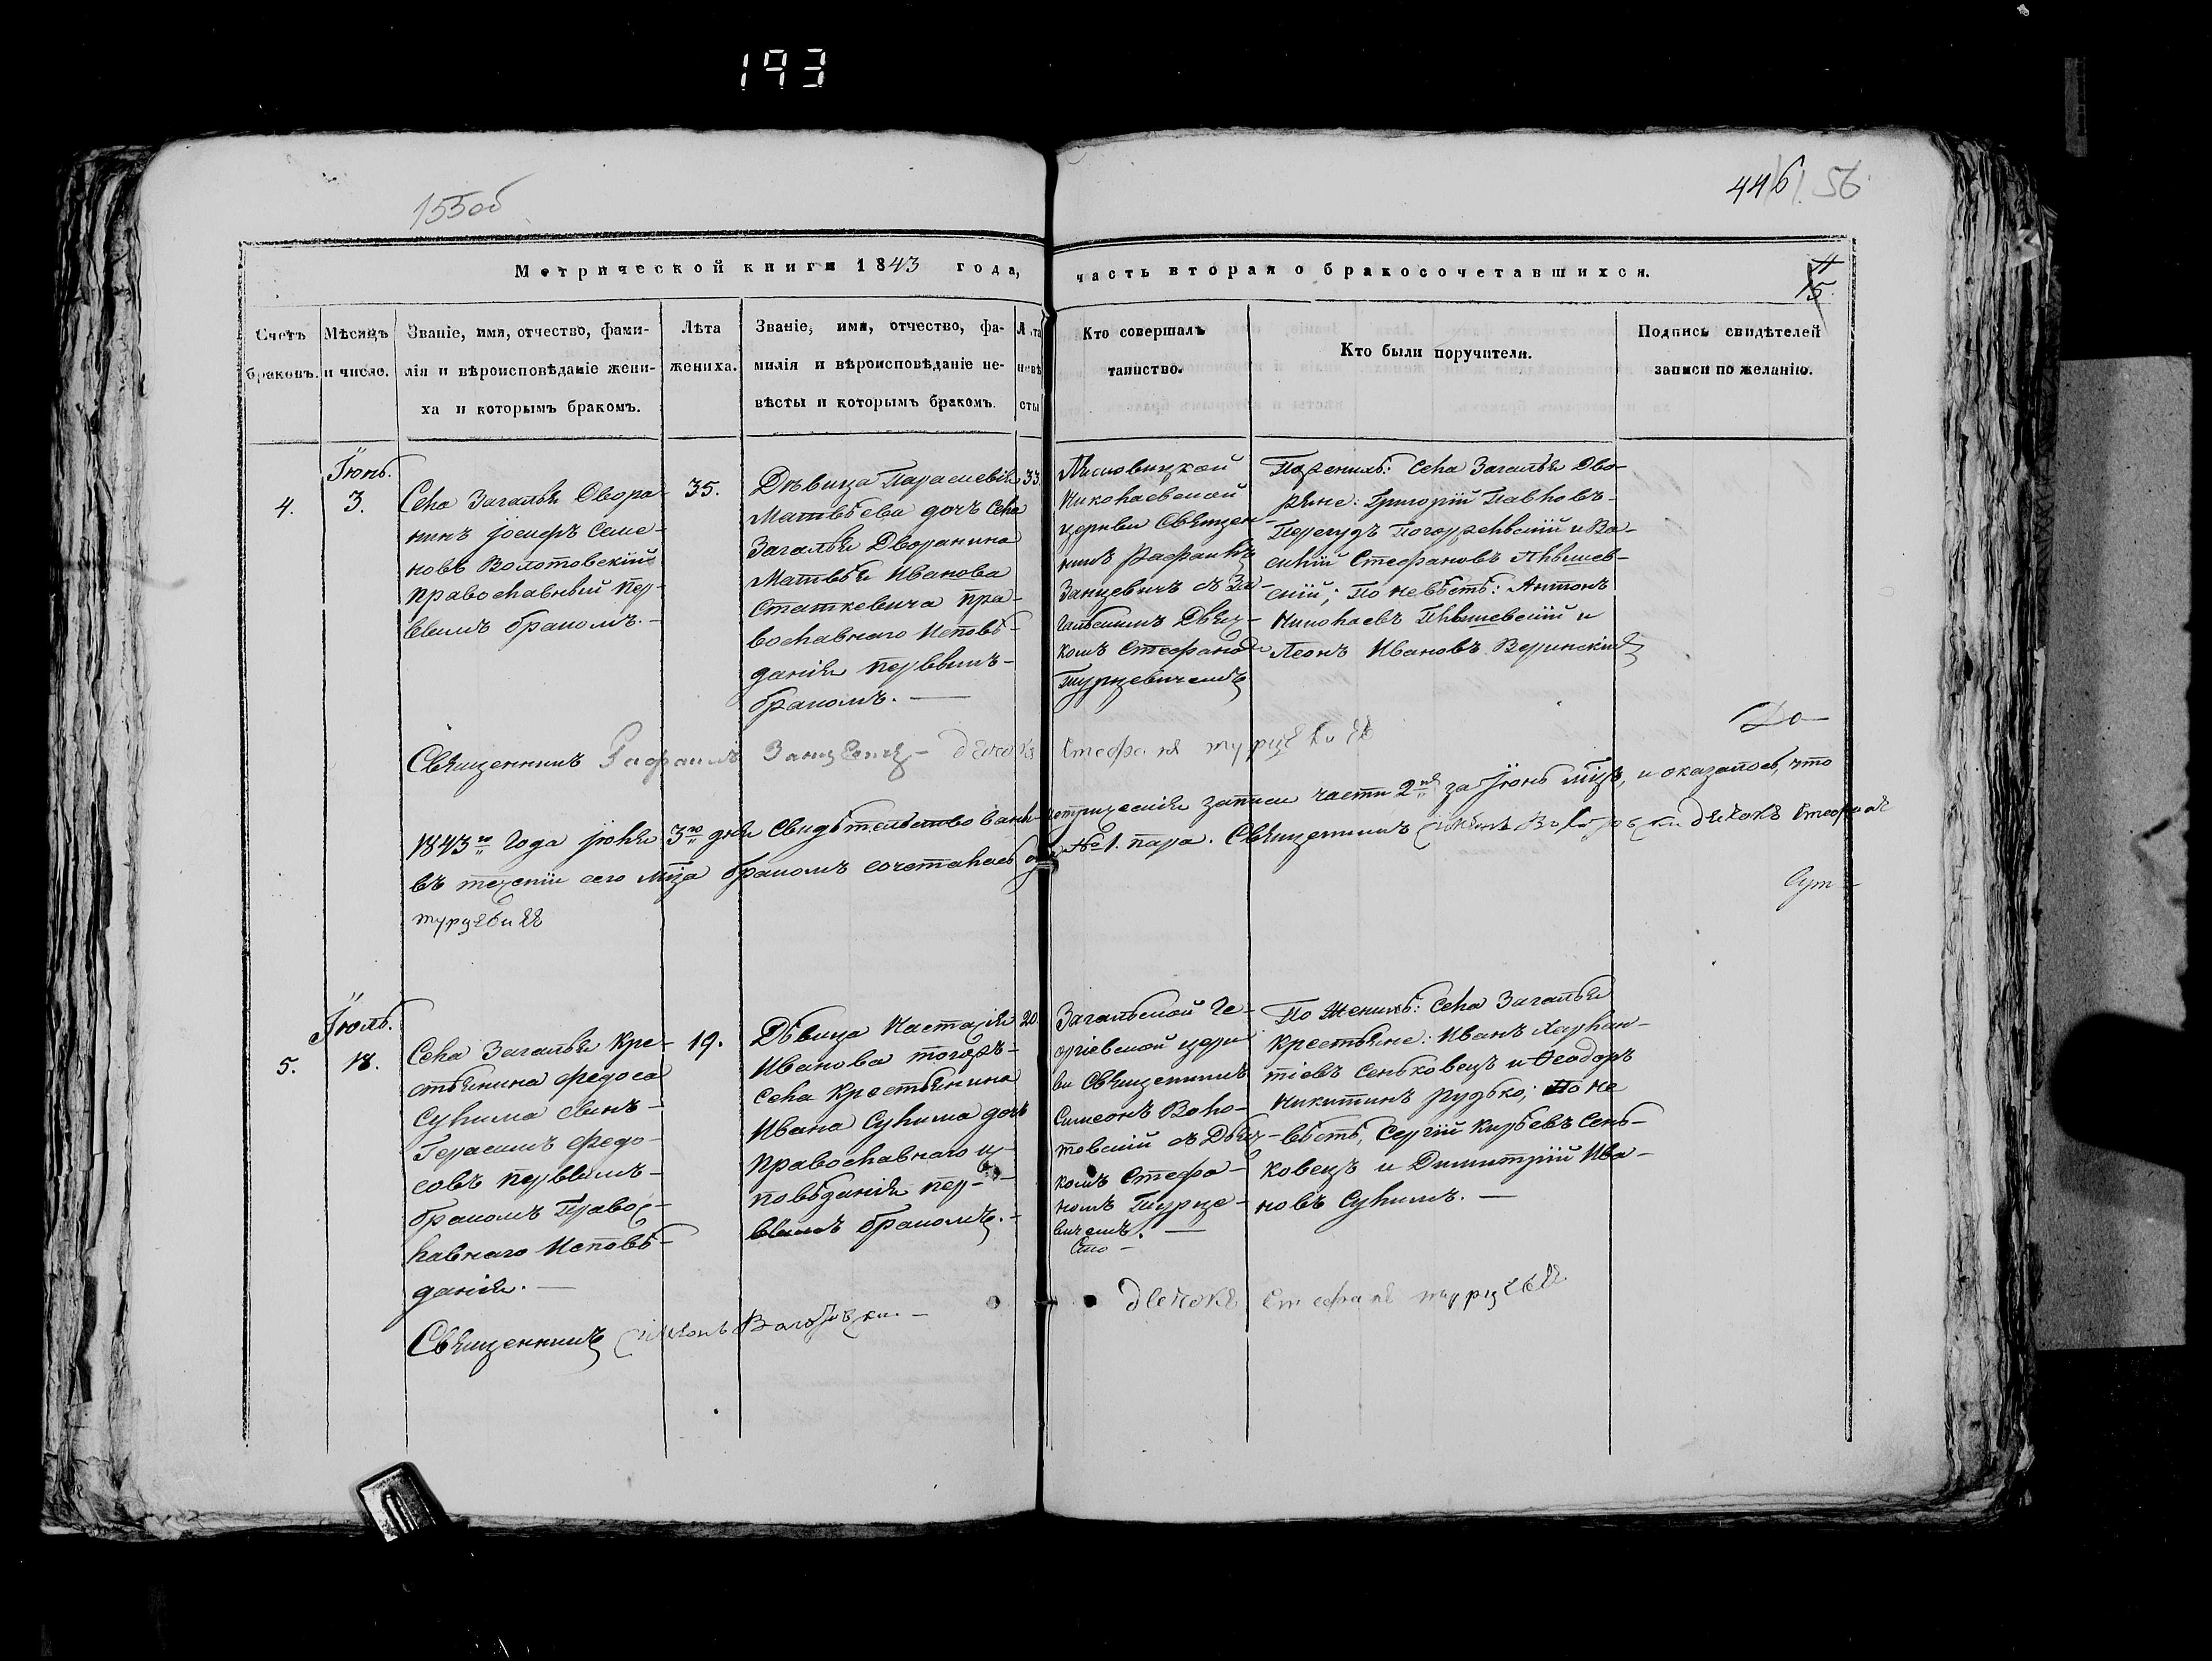 193
155об
446. 56
Метрической книги 1843 года, часть вторая о бракосочетавшихся.
11
15
Счетъ браковъ.
Мѣсяцъ и число.
Званіе, имя, отчество, фами-
лія и вѣроисповѣданіе жени-
ха и которымъ бракомъ.
Лѣта
жениха.
Званіе, имя, отчество, фа-
милія и вѣроисповѣданіе не-
вѣсты и которымъ бракомъ.
Лѣта
невѣ
сты
Кто совершалъ
таинство.
Кто были поручители.
Подпись свидѣтелей
записи по желанію.
4.
Іюнь.
3.
Села Загалья Дворя-
нинъ Іосифъ Семе-
новъ Волотовскій
православный пер-
вымъ бракомъ.-
35.
Дѣвица Параскевія
Матвѣева дочь Села
Загалья Дворянина
Матвѣя Иванова
Статкевича пра-
вославнаго Исповѣ-
данія первымъ-
бракомъ. —
33.
Николаевской
церкви Священ-
никъ Рафаилъ
Занцевичъ съ За-
гальскимъ Дьяч-
комъ Стефаномъ
Турцевичемъ
По женихѣ: Села Загалья Дво-
ряне: Григорій Павловъ-
и Ва-
силій Стефановъ
скій; По невѣстѣ: Антонъ
Николаевъ и
Леонъ Ивановъ Веринскій
До-
Священникъ Рафаилъ Занцевичъ - дьячокъ Стефанъ турцевичъ
1843го Года Іюня 3го дня Свидѣтельствованы метрическія записи части 2й за Іюнь мцъ, и оказалось, что
въ теченіи сего мца бракомъ сочеталась одна №1. пара. Священникъ Симеонъ дьячокъ Стефанъ
турцевичъ
5.
Іюль.
18.
Села Загалья Кре-
стьянина Федоса
Сулима сынъ-
Герасимъ Федо-
совъ первымъ-
бракомъ Правос-
лавнаго Исповѣ-
данія. —
19.
Дѣвица Настасія
Иванова тогожъ-
села Крестьянина
Ивана Сулима дочь
Православнаго ис-
повѣданія пер-
вымъ бракомъ.-
20.
Загальской Ге-
оргіевской церк-
ви Священникъ
Симеонъ Воло-
товскій съ Дьяч-
комъ Стефа-
номъ Турце-
вичемъ. —
По Женихѣ: Села Загалья
Крестьяне: Иванъ Харлам-
піевъ Сеньковецъ и Ѳеодоръ
Никитинъ Рудько; По не
вѣстѣ, Сергій Кирѣевъ Сень-
ковецъ и Димитрій Ива-
новъ Сулимъ. —
дьячокъ Стефанъ турцевичъ
Священникъ Симеонъ Волотовскій -